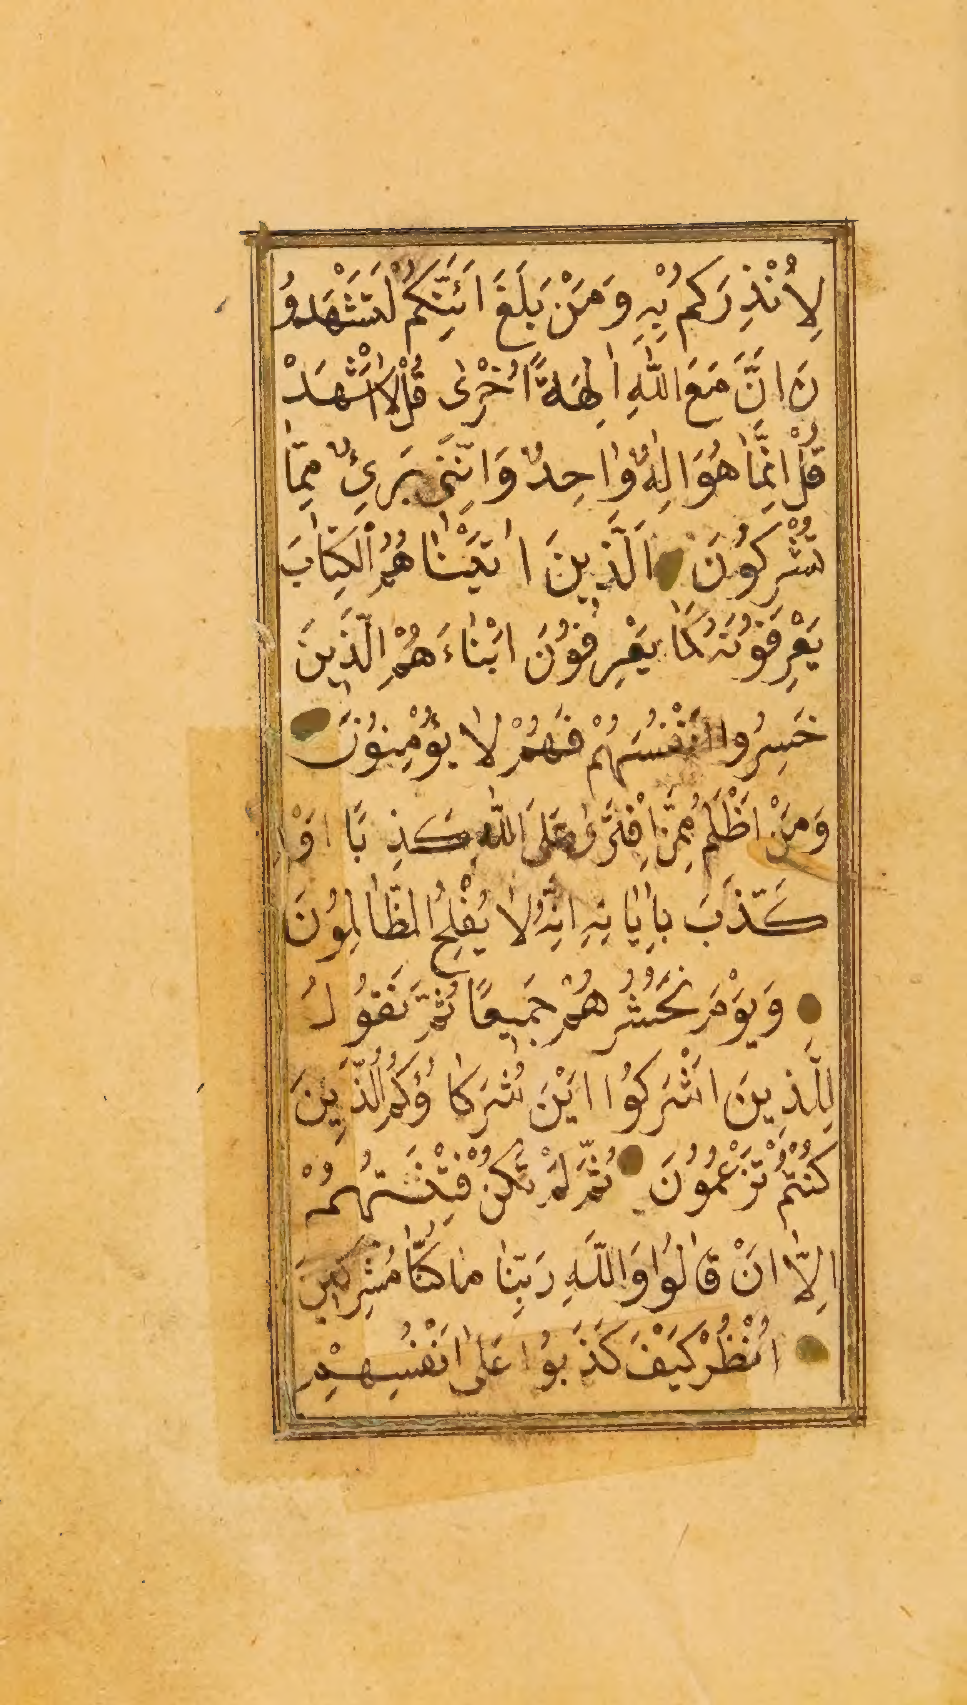 لِاُنْذِرَكُمْ بِهِ وَمَنْ بَلَغَ اَئِنَّكُمْ لَتَشْهَدُو
نَ اَنَّ مَعَ اللّٰهِ اٰلِهَةً اُخْرٰى قُلْ لَا اَشْهَدْ
قُلْ اِنَّمَا هُوَ اِلٰهٌ وٰاحِدٌ وَاِنَّنِى بَرِئٌ مِمّٰا
تُشْرِكُونَ اَلَّذِينَ اٰتَيْنٰاهُمُ الْكِتٰابَ
يَعْرِفُونَهُ كَمٰا يَعْرِفُونَ اَبْنٰاءَهُمْ الَّذِينَ
خَسِرُوا اَنْفُسَهُمْ فَهُمْ لٰا يُؤْمِنُونَ
وَمَنْ اَظْلَمُ مِمَّنِ افْتَرٰى عَلَى اللّٰهِ كَذِبًا اَوْ
كَذَّبَ بِاٰيٰاتِهِ اِنَّهُ لٰا يُفْلِحُ الظّٰالِمُونَ
وَيَوْمَ نَحْشُرُهُمْ جَمِيعًا ثُمَّ نَقُولُ
لِلَّذِينَ اَشْرَكُوا اَيْنَ شُرَكٰاؤُكُمُ الَّذِينَ
كُنْتُمْ تَزْعُمُونَ ثُمَّ لَمْ تَكُنْ فِتْنَتُهُمْ
اِلّٰا اَنْ قٰالُوا وَاللّٰهِ رَبِّنٰا مٰا كُنّٰا مُشْرِكِينَ
اُنْظُرْ كَيْفَ كَذَبُوا عَلٰى اَنْفُسِهِمْ